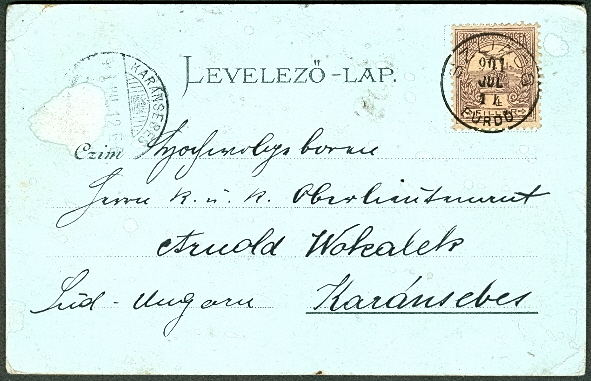 LEVELEZŐ-LAP.
901
JUL
14
FÜRDŐ
KARÁNSEBES
Czim Hochwolgeboren
Herrn k. u. k. Oberlieutenant
Arnold Wokalek
Süd-Ungarn Karánsebes